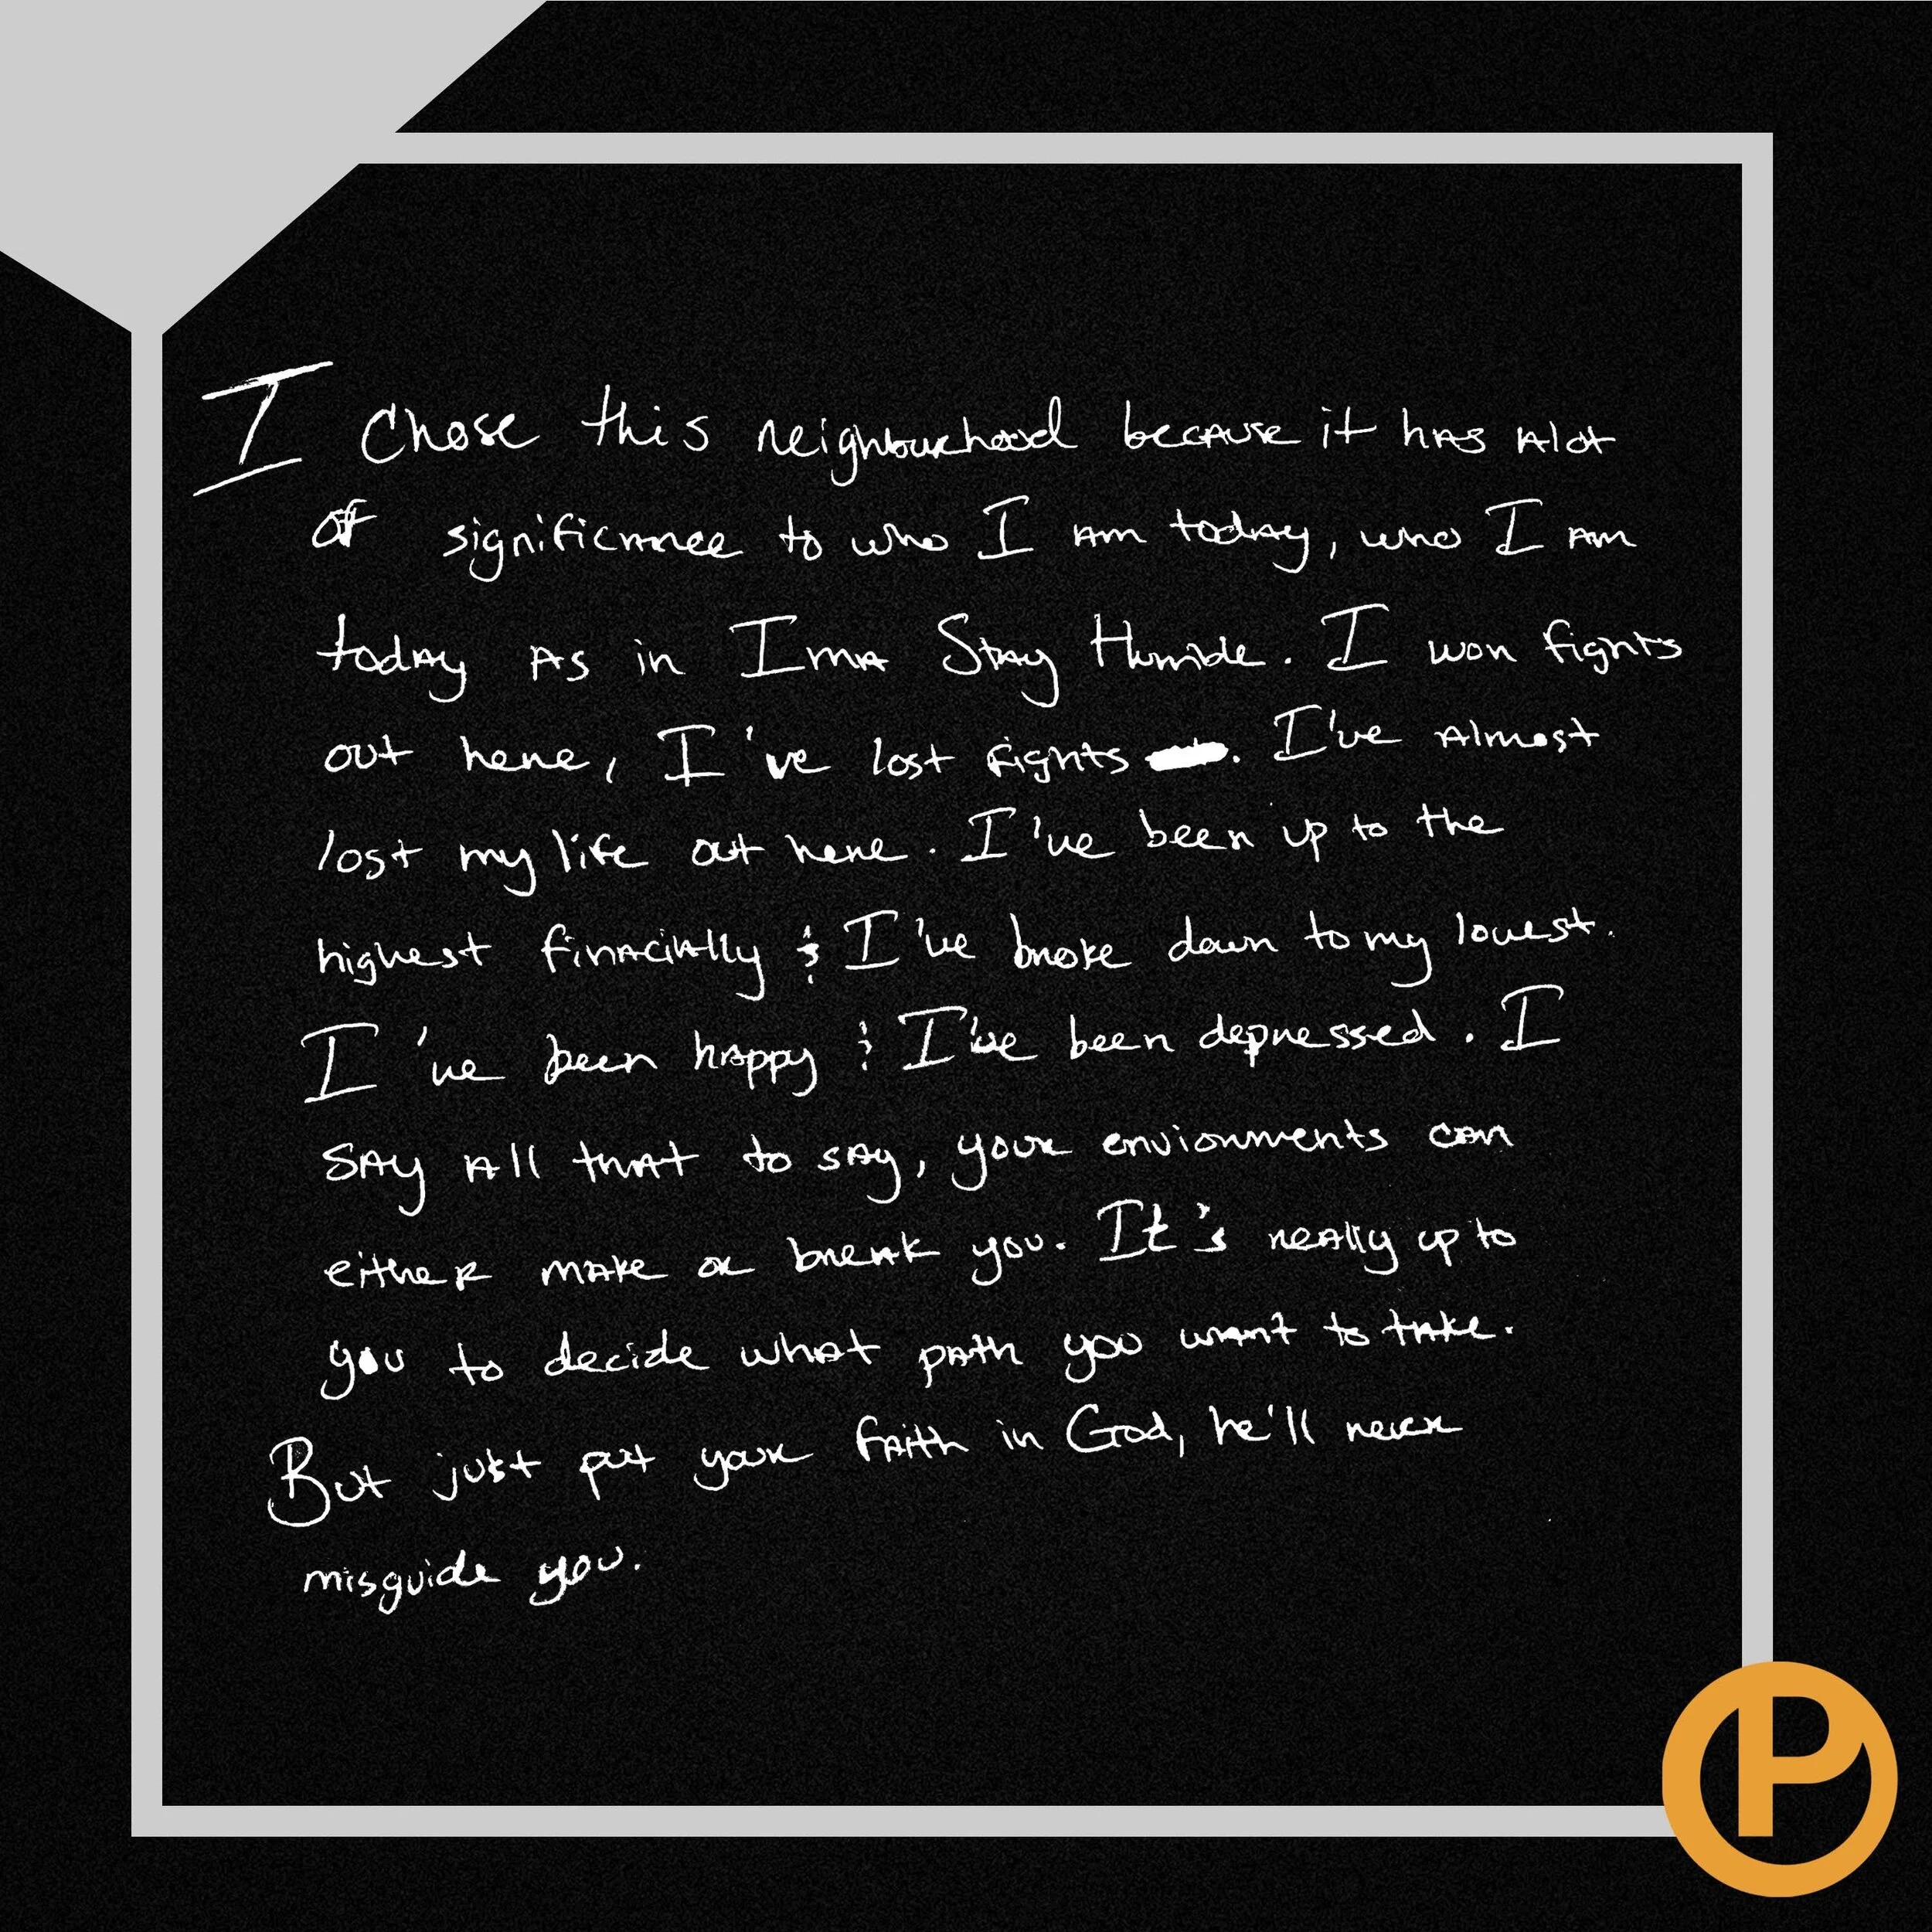 I Chose this neighbourhood because it has alot
of significancee to who I am today, who I am
today as in Ima Stay Humble. I won fights
out here, I've lost fights . I've almost
lost my life out here. I've been up to the
highest finacially & I've broke down to my lowest.
I've been happy & I've been depressed. I
say all that to say, your envionments can
either make or break you. It's really up to
you to decide what path you want to take.
But just put your faith in God, he'll never
misguide you.
P